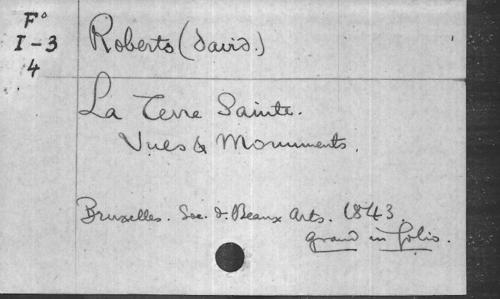 F°
I-3
4
Roberts (David.)
La Terre Sainte.
Vues & Monuments.
Bruxelles. Soc. d. Beaux Arts. 1843.
grand in folio.